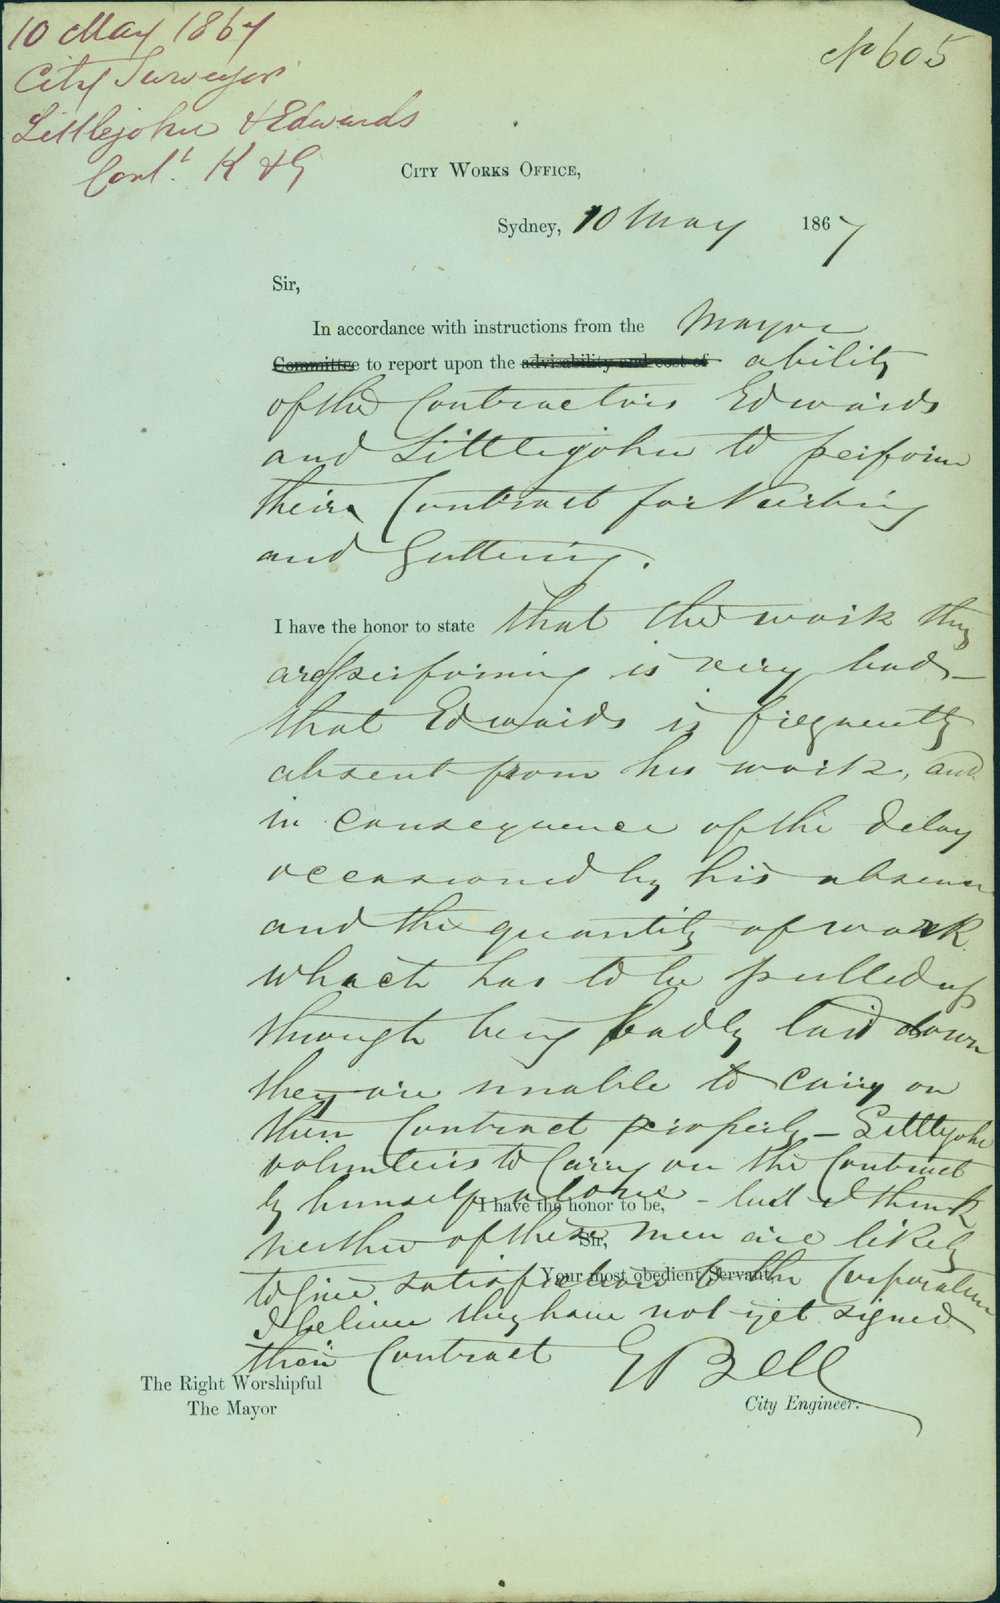 10 May 1867
City Surveyor
Littlejohn & Edwards
Cont.t K & G
No 605
City Works Office,
Sydney, 10 May 1867
Sir,
In accordance with instructions from the Mayor
Committee to report upon the advisability and cost of ability
of the Contractors Edwards
and Littlejohn to perform
their Contract for Kerbing
and Guttering.
I have the honor to state that the work they
are performing is very bad -
that Edwards is frequently
absent from his work, and
in consequence of the delay
occasioned by his absence
and the quantity of work
which has to be pulled up
through being badly laid down
they are unable to carry on
their Contract properly - Littlejohn
volunteers to carry on the Contract
by himself alone - but I think
I have the honor to be,
neither of these men are likely
Sir,
to give satisfaction to the Corporation
Your most obedient Servant,
I believe they have not yet signed
their Contract E Bell
The Right Worshipful
The Mayor
City Engineer.